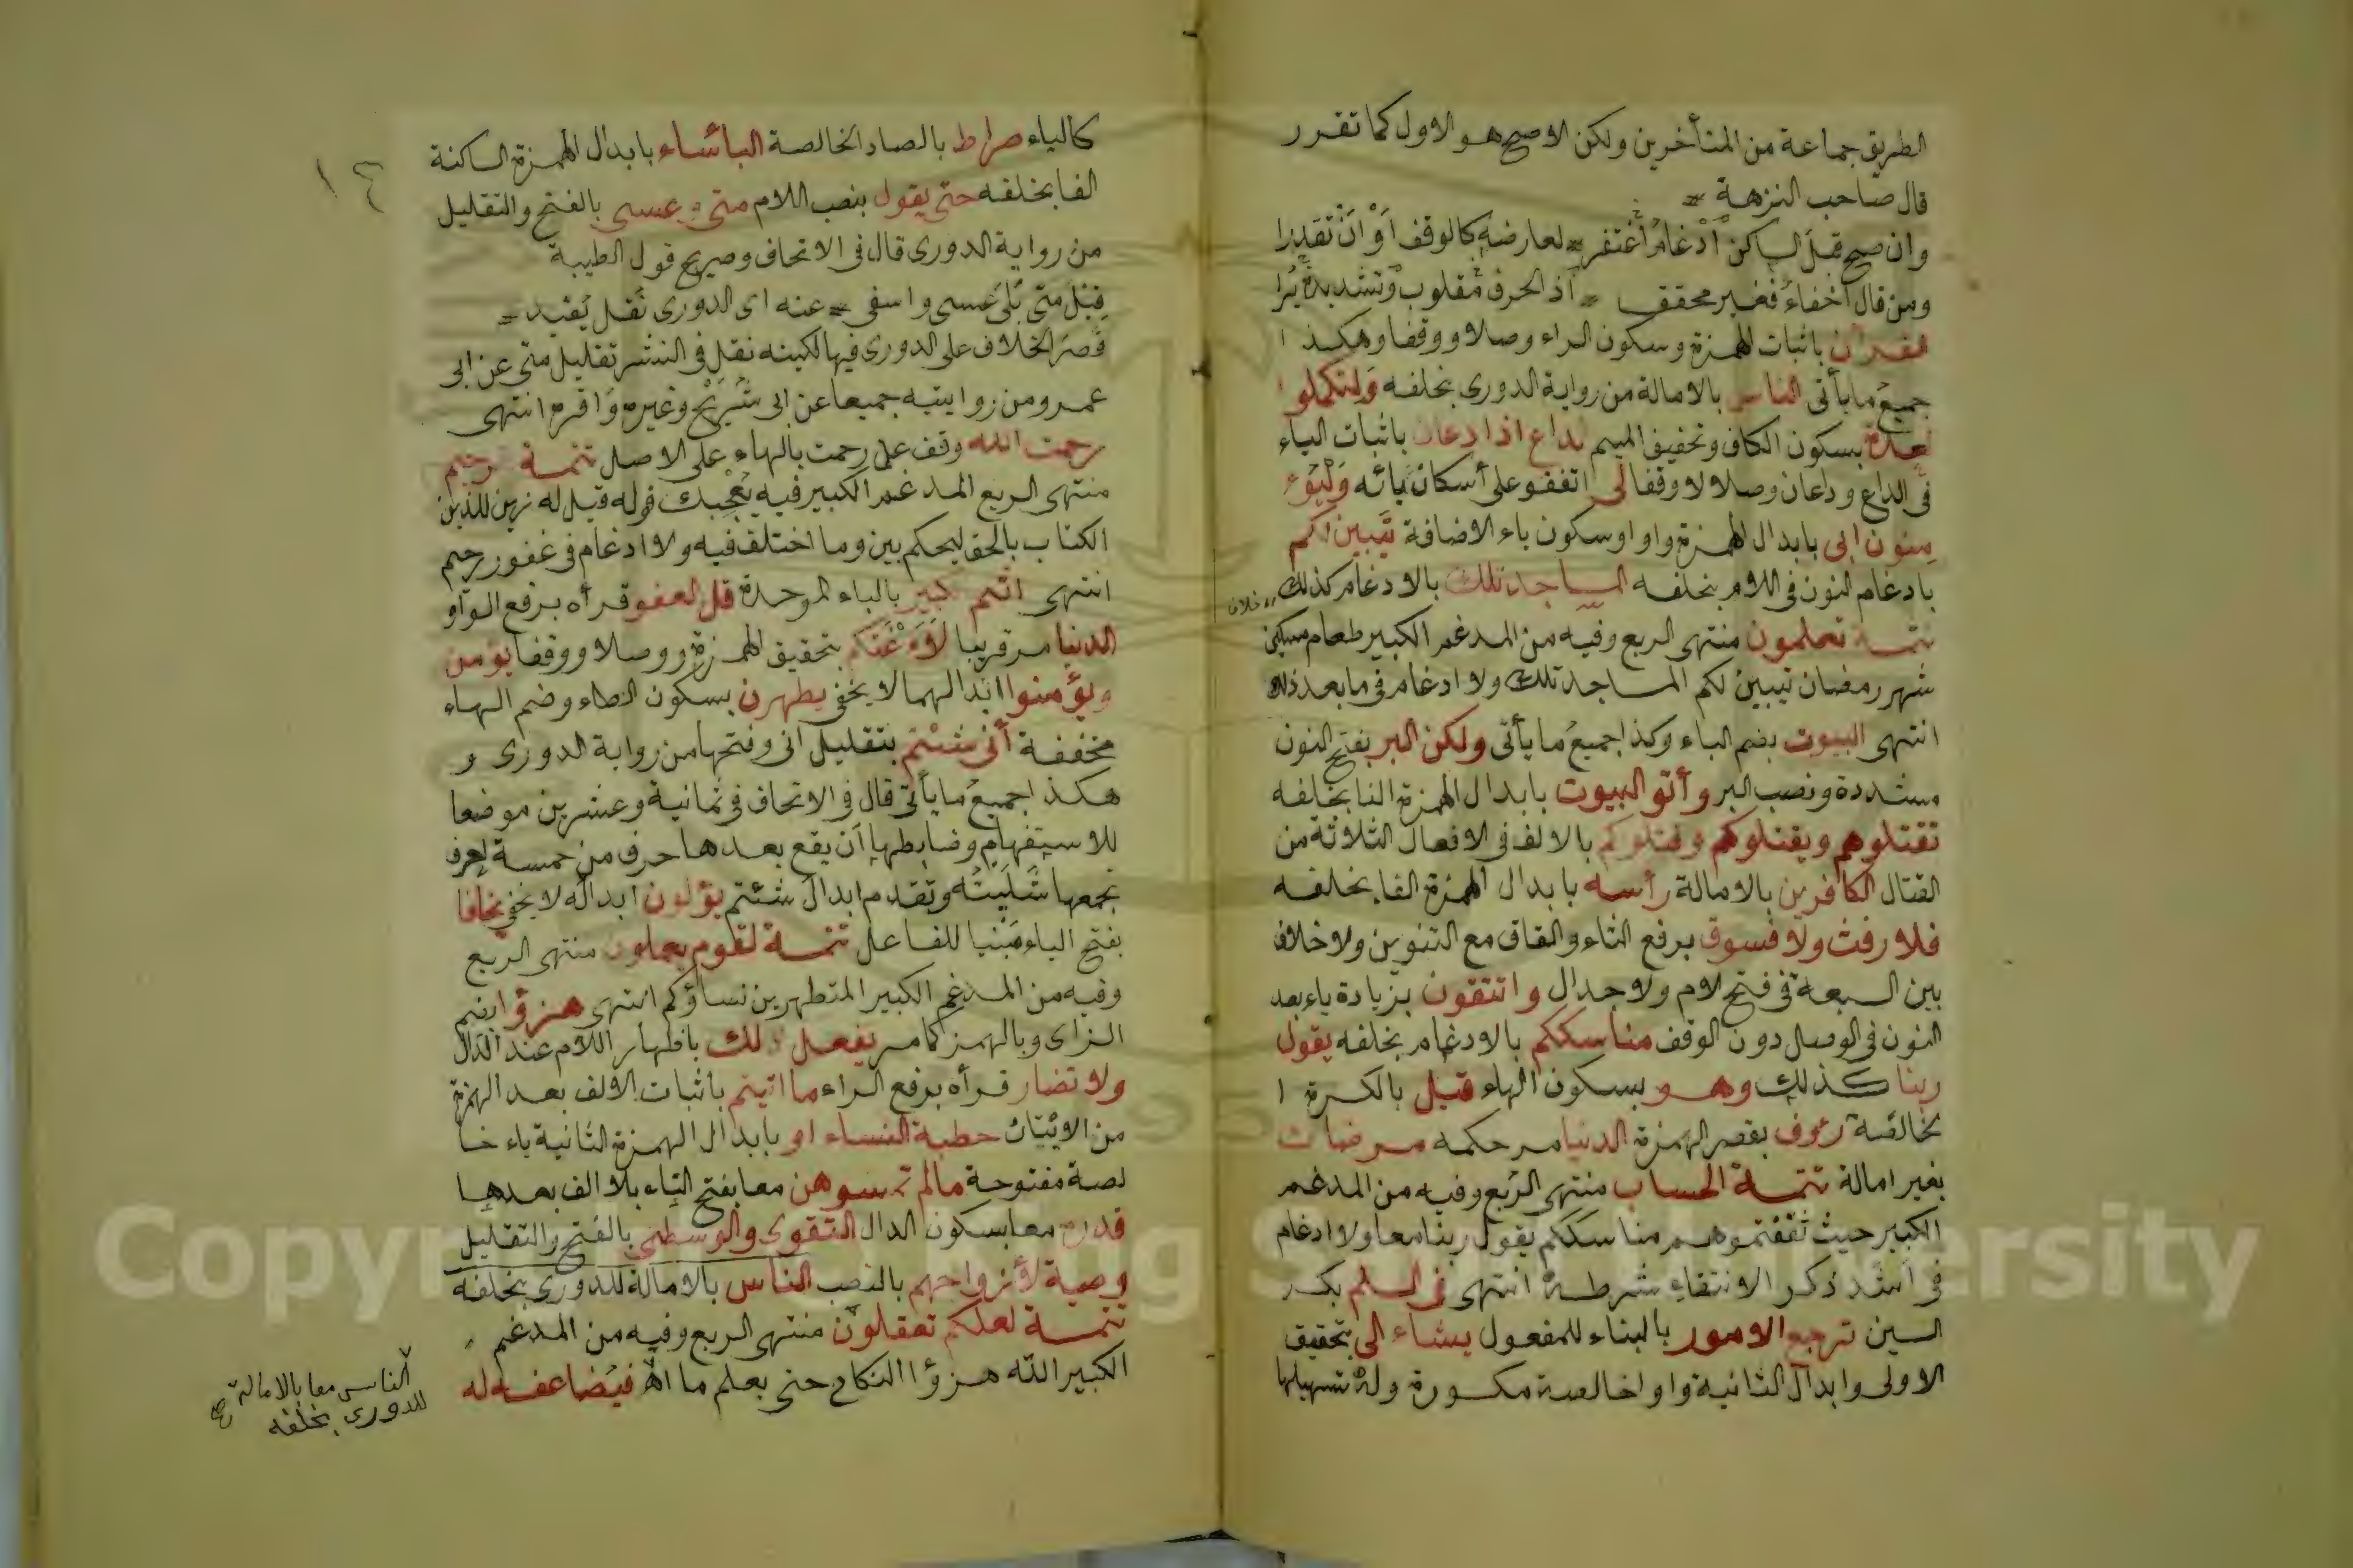 الطريق جماعة من المتأخرين ولكن الاصح هو الاول كما تقرر
قال صاحب النزهة
وان صح قبل الساكن ادغام اغتفر لعارضه كالوقف او ان تقدرا
ومن قال اخفاء فغير محقق اذ الحرف مقلوب وتشديده يرا
القرآن باثبات الهمزة وسكون الراء وصلا ووقفا وهكذا
جميع ما يأتى الناس بالامالة من رواية الدورى بخلفه ولتكملوا
العدة بسكون الكاف وتخفيف الميم الداع اذا دعان باثبات الياء
فى الداع ودعان وصلا لا وقفا لى اتفقوا على أسكان يائه وليؤ
منون ابى بابدال الهمزة واوا وسكون ياء الاضافة يتبين لكم
بادغام النون فى اللام بخلفه المساجد تلك بالادغام كذلك خلاف
تتمة تعلمون منتهى الربع وفيه من المدغم الكبير طعام مسكين
شهر رمضان يتبين لكم المساجد تلك ولا ادغام فى ما بعد ذلك
انتهى البيوت بضم الباء وكذا جميع ما يأتى ولكن البر بفتح النون
مشددة ونصب البر وأتو البيوت بابدال الهمزة الفا بخلفه
تقتلوهم ويقتلوكم وقتلوكم بالالف فى الافعال الثلاثة من
القتال الكافرين بالامالة رأسه بابدال الهمزة الفا بخلفه
فلا رفث ولا فسوق برفع الثاء والقاف مع التنوين ولا خلاف
بين السبعة فى فتح لام ولا جدال واتقون بزيادة ياء بعد
النون فى الوصل دون الوقف مناسككم بالادغام بخلفه يقول
ربنا كذلك وهو بسكون الهاء قيل بالكسرة ا
لخالصة رؤف بقصر الهمزة الدنيا مر حكمه مرضات
بغير امالة تتمة الحساب منتهى الربع وفيه من المدغم
الكبير حيث ثقفتموهم مناسككم يقول ربنا معا ولا ادغام
فى اشد ذكرا لانتفاء شرطه انتهى فى السلم بكسر
السين ترجع الامور بالبناء للمفعول يشاء الى بتحقيق
الاولى وابدال الثانية واوا خالصة مكسورة وله تسهيلها
١٤
كالياء صراط بالصاد الخالصة البأساء بابدال الهمزة الساكنة
الفا بخلفه حتى يقول بنصب اللام متى وعسى بالفتح والتقليل
من رواية الدورى قال فى الاتحاف وصريح قول الطيبة
قبل متى بلى عسى واسفى عنه اى الدورى نقل يفيد
قصر الخلاف على الدورى فيها لكنه نقل فى النشر تقليل متى عن ابى
عمرو من روايتيه جميعا عن ابى شريح وغيره واقره انتهى
رحمت الله وقف على رحمت بالهاء على الاصل تتمة رحيم
منتهى الربع المدغم الكبير فيه يعجبك قوله قيل له زين للذين
الكتاب بالحق ليحكم بين وما اختلف فيه ولا ادغام فى غفور رحيم
انتهى اثم كبير بالباء الموحدة قل العفو قرأه برفع الواو
الدنيا مر قريبا لأعنتكم بتحقيق الهمزة ووصلا ووقفا يؤمن
ويؤمنوا ابدالهما لا يخفى يطهرن بسكون الطاء وضم الهاء
مخففة أنى شئتم بتقليل انى وفتحها من رواية الدورى و
هكذا جميع ما يأتى قال فى الاتحاف فى ثمانية وعشرين موضعا
للاستفهام وضابطها أن يقع بعدها حرف من خمسة احرف
تجمعها شليته وتقدم ابدال شئتم يؤلون ابداله لا يخفى يخافا
بفتح الياء مبنيا للفاعل تتمة لقوم يعلمون منتهى الربع
وفيه من المدغم الكبير المتطهرين نساؤكم انتهى هزؤا بضم
الزاى وبالهمز كما مر يفعل ذلك باظهار اللام عند الذال
ولا تضار قرأه برفع الراء ما اتيتم باثبات الالف بعد الهمزة
من الايتان خطبة النساء او بابدال الهمزة الثانية ياء خا
لصة مفتوحة مالم تمسوهن معا بفتح التاء بلا الف بعدها
قدره معا بسكون الدال التقوى والوسطى بالفتح والتقليل
وصية لأزواجهم بالنصب الناس بالامالة للدورى بخلفه
تتمة لعلكم تعقلون منتهى الربع وفيه من المدغم
الكبير الله هزؤا النكاح حتى يعلم ما اه فيضاعفه له
الناس معا بالامالة
للدورى بخلفه صح
Copyright © King Saud University